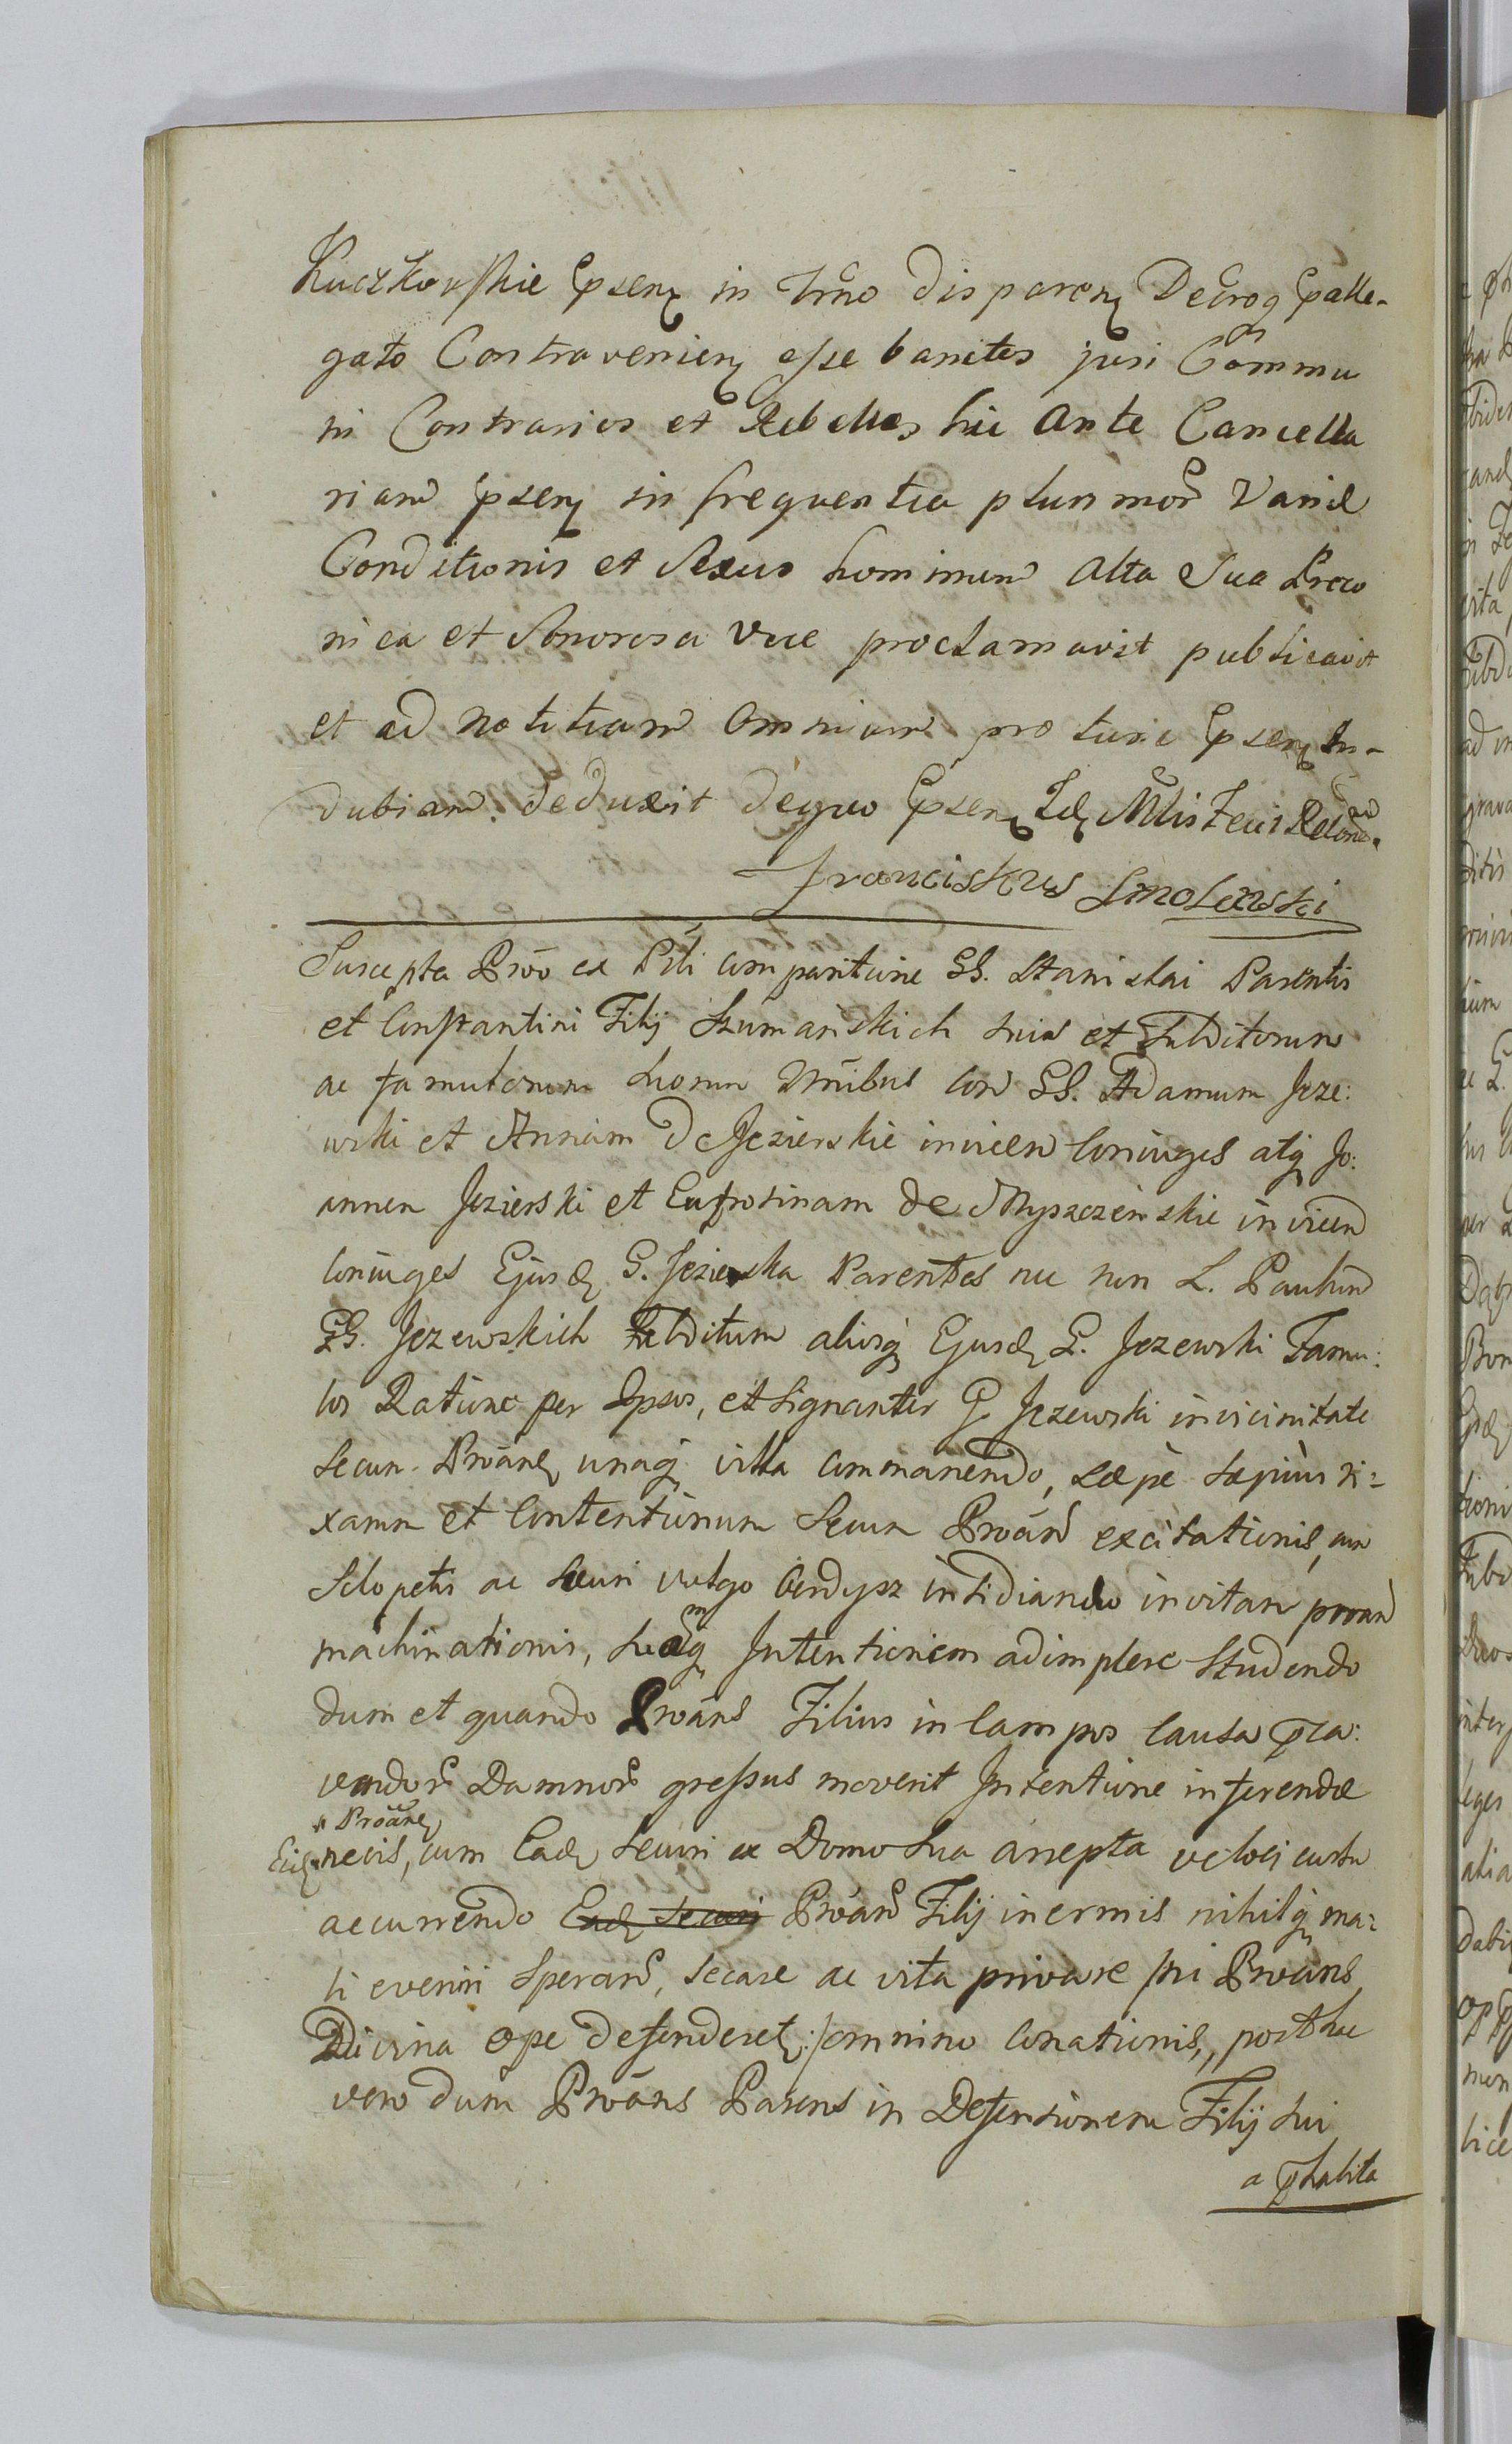 Kuczkowskie psen in Trno disparen Decrog palle-
gato Contravenien esse banitos juri Commu
ni Contrarios et Rebelles hic ante Cancella
riam psen in frequentia plurimor Variæ
Conditionis et Sexus hominum alta Sua Preco
nica et Sonorosa voce proclamavit publicavit
et ad notitiam omnium pro tunc psen In-
dubiam deduxit dequo psen Idq Mlis Fecit Relonem.
Franciskus Smolenski
Suscepta Prõo ex Psti comparitione GG. Stanislai Parentis
et Constantini Filij Szumanskich suis et Subditorum
ac famulorum suorum nnibus con GG. Adamum Jeze:
wski et Annam de Jezierskie invicem Coniuges atq Jo:
annem Jezierski et Eufrosinam de Myszczenskie invicem
Coniuges Ejusd G. Jezierska Parentes nec non L. Paulum
GG. Jezewskich Subditum aliosq Ejusd G. Jezewski Famu:
los Ratione per Ipsos, et Signanter G. Jezewski in vicinitate
Secum Proane unaq villa commanendo, sæpe sæpius ri=
xarum et Contentionum Secum Proañ excitationis, cum
Sclopetis ac Securi vulgo Berdysz insidiando in vitam proan
machinationis, suamq Intentionem adimplere Studendo
dum et quando Proãns Filius in Campos causa præca:
vendor Damnor gressus moverit Intentione inferendæ
* Proãne
Eid necis, cum Eade Securi ex Domo sua arrepta veloci cursu
accurrendo Ead Securi Proañ Filij inermis nihilq ma:
li eveniri Speran, Secare ac vita privare /ni Proans
Divina ope defenderet:/ omnino conationis, post hac
vero dum Proãns Parens in Defensionem Filij sui
a phabita